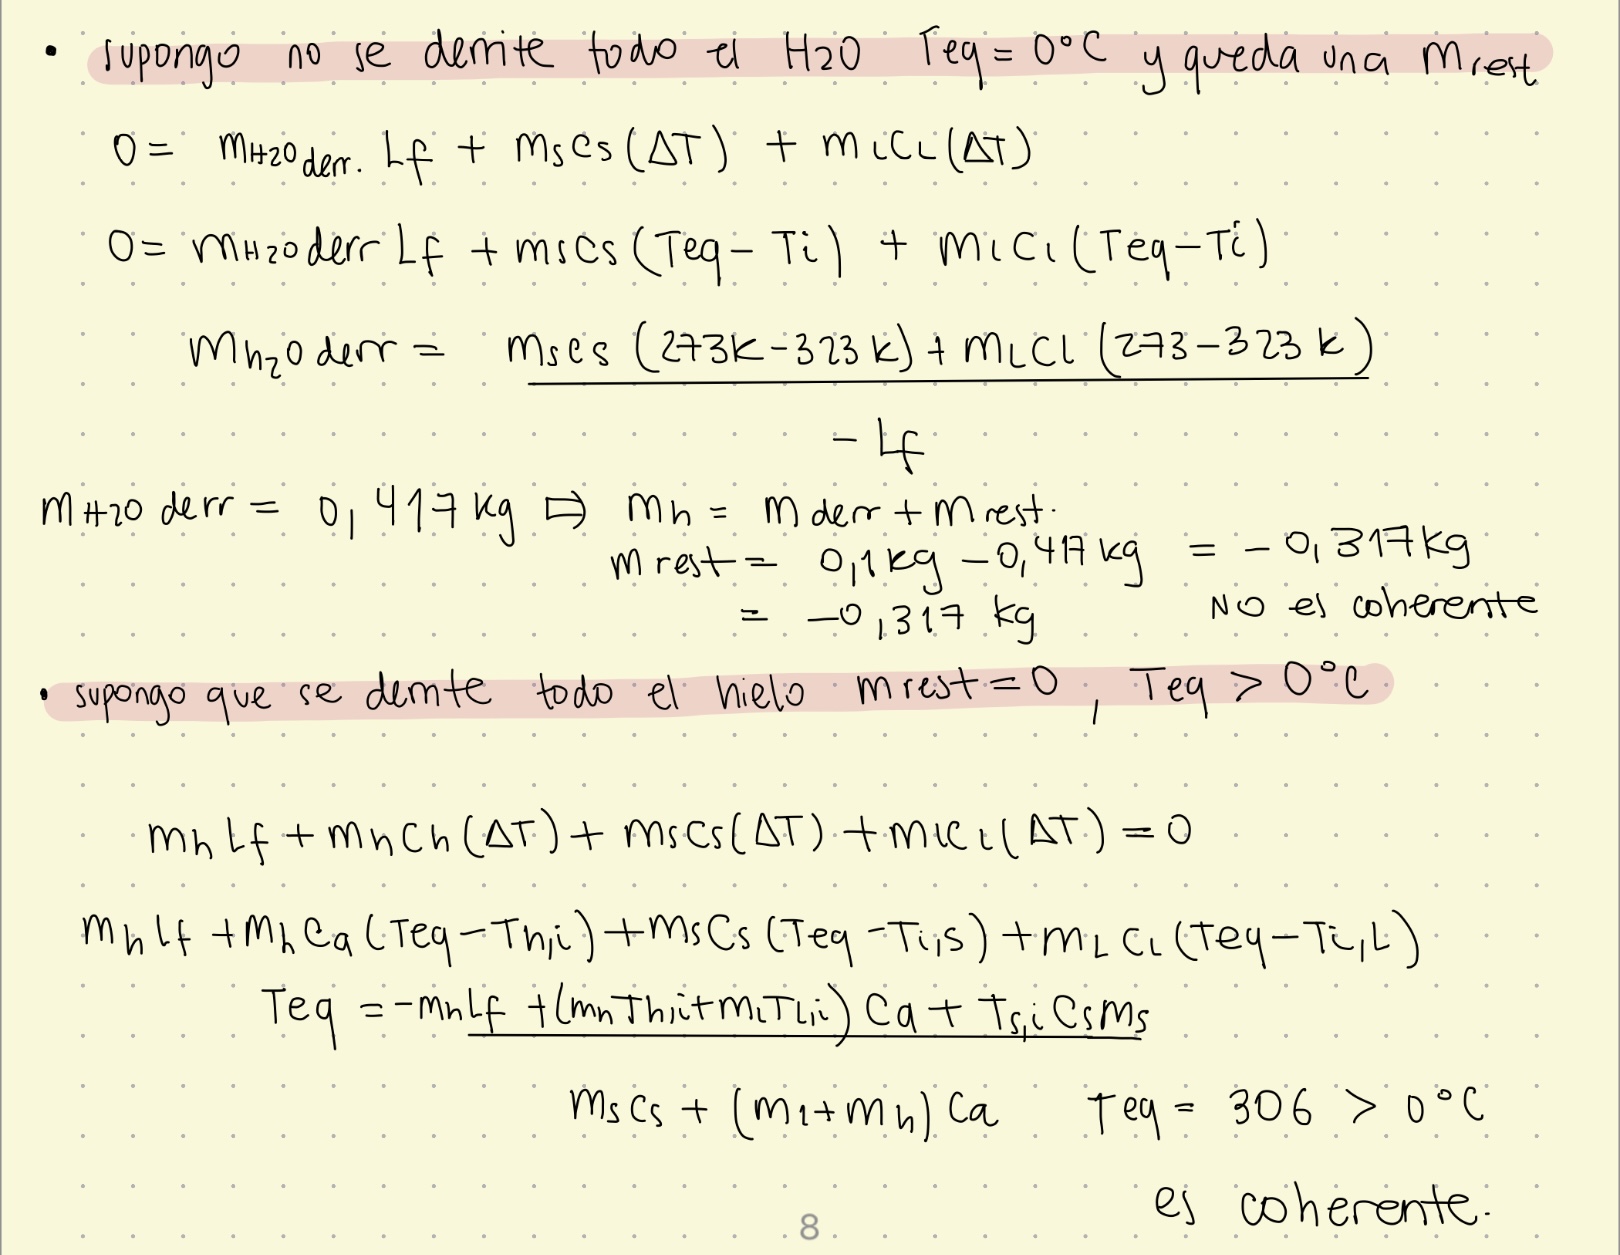 • supongo no se derrite todo el H2O Teq = 0°C y queda una mrest
0 = mH2O derr. Lf + mscs (ΔT) + mLCL (ΔT)
0 = mH2O derr Lf + mscs (Teq - Ti) + mLCL (Teq - Ti)
mh2O derr = mscs (273K - 323 K) + mLCL (273 - 323 K)
- Lf
mH2O derr = 0,417 kg ⇨ mh = m derr + m rest.
m rest = 0,1 kg - 0,417 kg = - 0,317 kg
= -0,317 kg NO es coherente
• supongo que se derrite todo el hielo m rest = 0, Teq > 0°C
mh Lf + mh Ch (ΔT) + mscs (ΔT) + mLCL (ΔT) = 0
mh Lf + mh Ca (Teq - Th,i) + ms Cs (Teq - Ti,s) + mL CL (Teq - Ti,L)
Teq = -mh Lf + (mh Th,i + mL TL,i) Ca + Ts,i Cs ms
ms Cs + (mL + mh) Ca Teq = 306 > 0°C
es coherente.
8